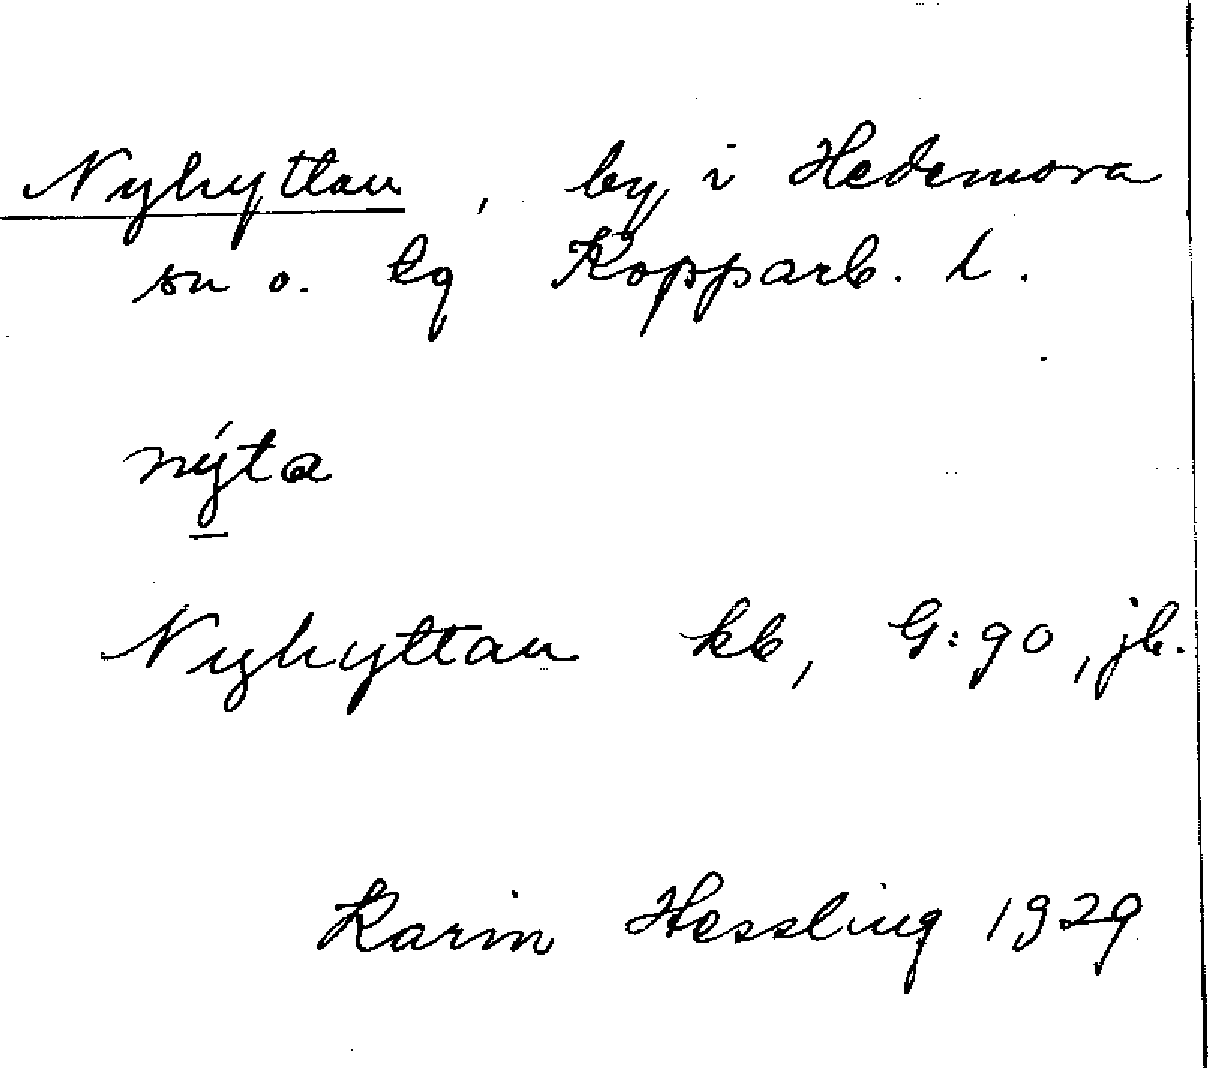 Nyhyttan, by i Hedemora
sn o. tg Kopparb. l.
nýta
Nyhyttan kb, G:90, jb.
Karin Hessling 1929